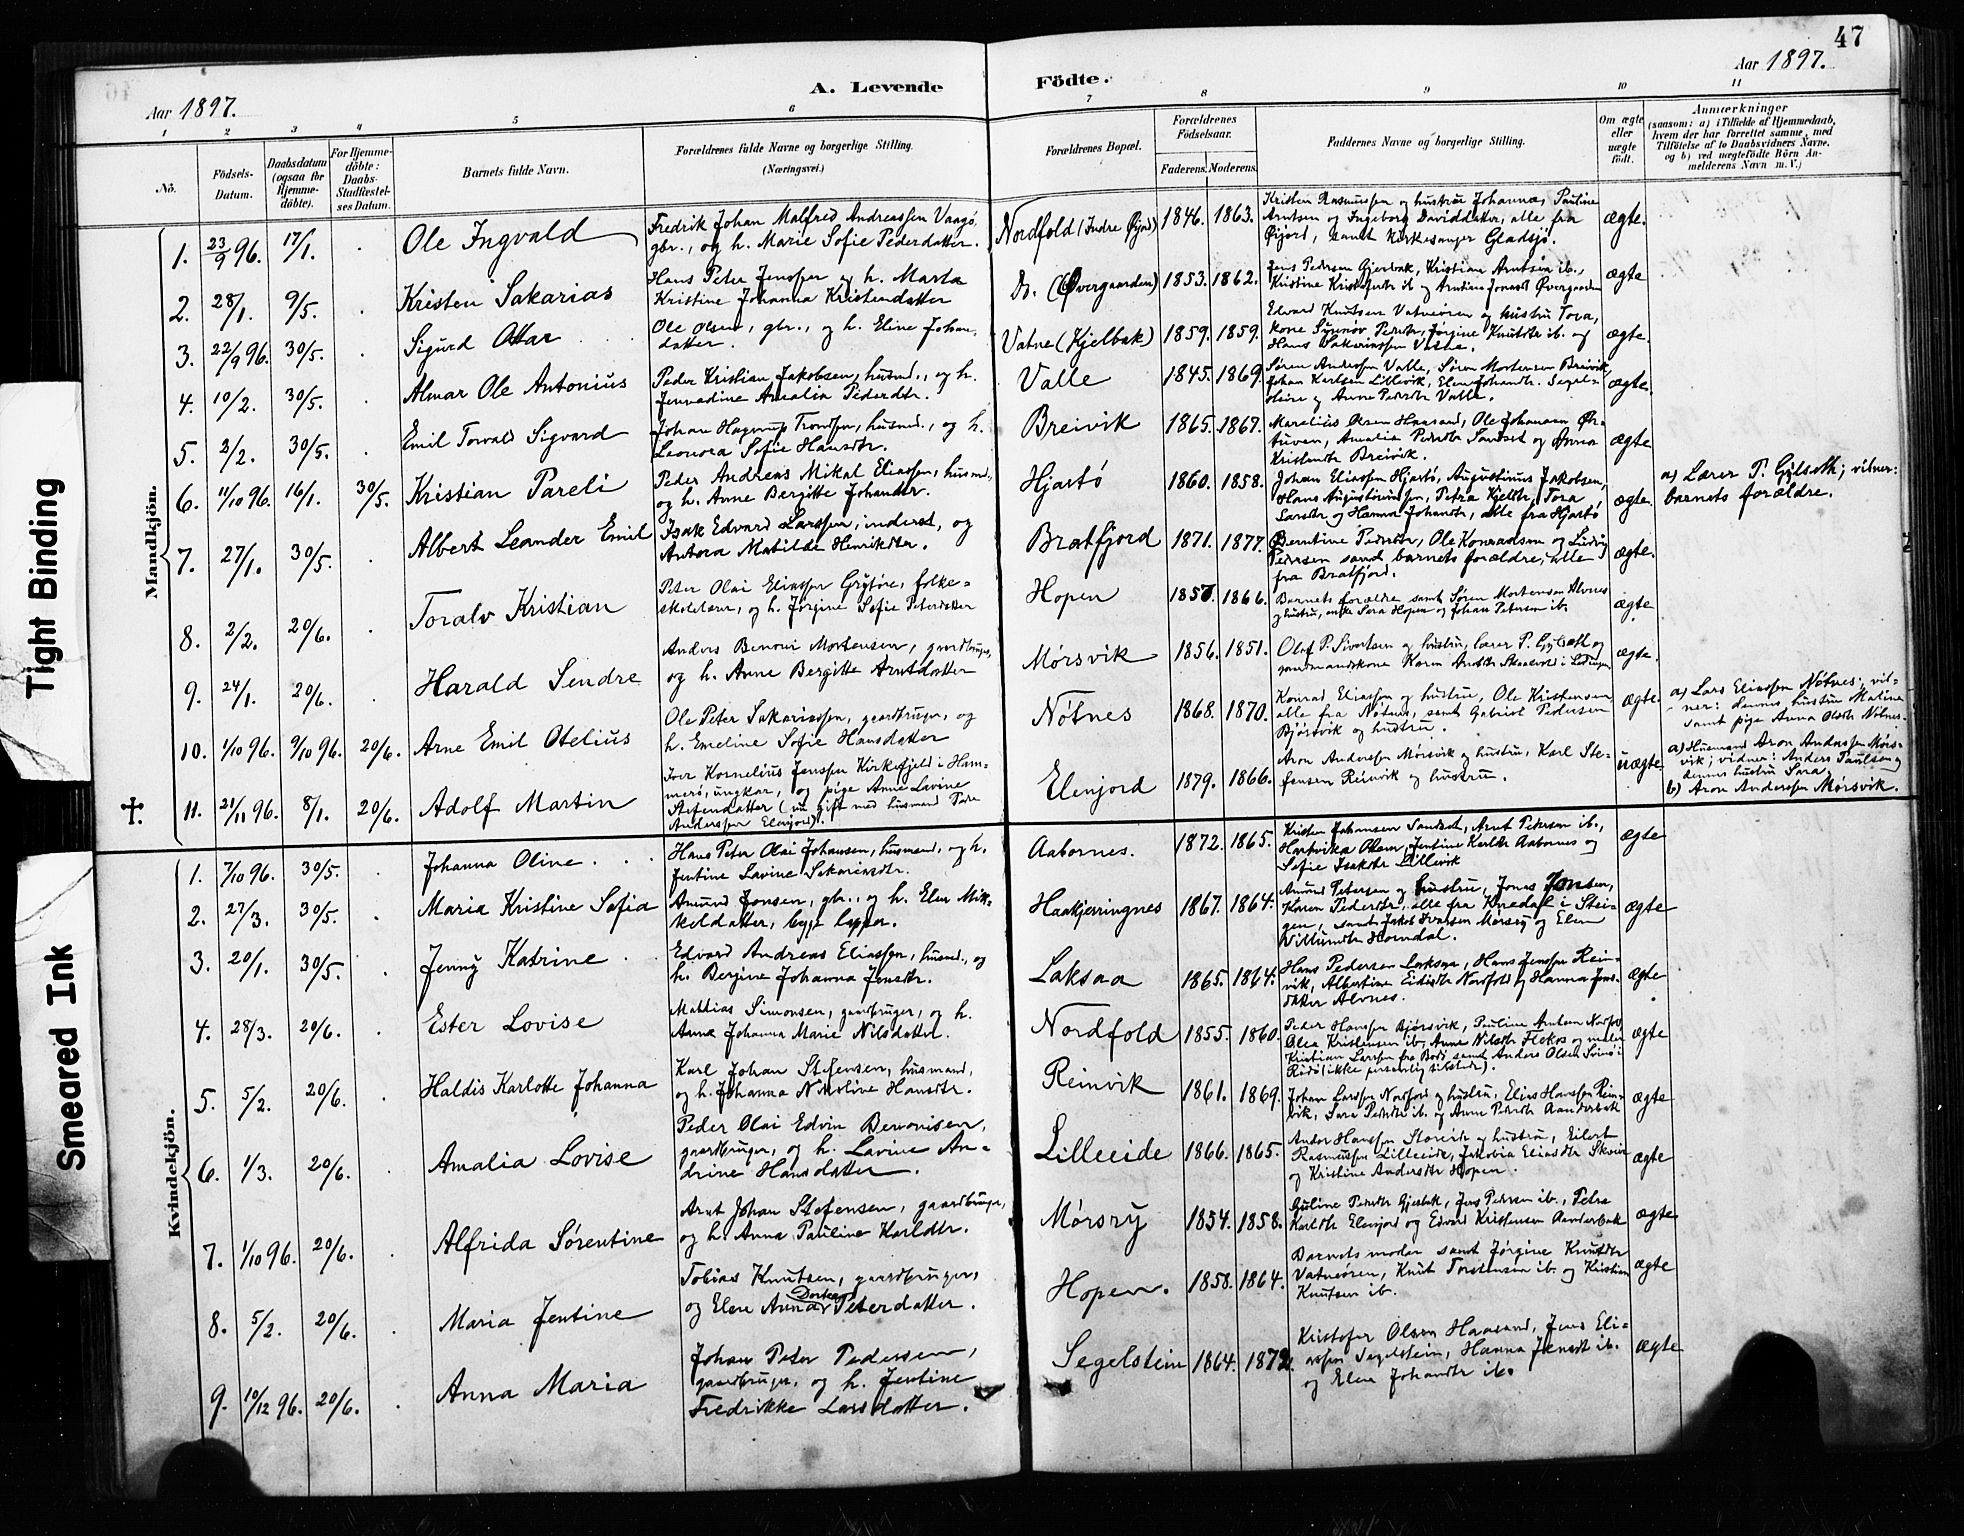 47
Aar 1897.
A. Levende
Födte.
Aar 1897.
1 2 3 4 5 6 7 8 9 10 11
No.
Födsels-
Datum.
Daabsdatum
(ogsaa for
Hjemme-
döbte).
For Hjemme-
döbte:
Daabs-
Stadfæstel-
ses Datum.
Barnets fulde Navn.
Forældrenes fulde Navne og borgerlige Stilling.
(Næringsvei.)
Forældrenes Bopæl.
Forældrenes
Födselsaar.
Faderens. Moderens.
Faddernes Navne og borgerlige Stilling.
Om ægte
eller
uægte
födt.
Anmærkninger
(saasom: a) i Tilfælde af Hjemmedaab,
hvem der har forrettet samme, med
Tilföielse af to Daabsvidners Navne,
og b) ved uægtefödte Börn An-
melderens Navn m. V.)
Mandkjön.
1. 23/9 96. 17/1. Ole Ingvald
Fredrik Johan Malfred Andreassen Vaagø,
gbr., og h. Marie Sofie Pedersdatter.
Nordfold (Indre Øijord) 1846. 1863.
Kristen Rasmussen og hustru Johanna, Pauline
Arntsen og Ingeborg Daviddatter, alle fra
Øijord, samt Kirkesanger Gladsjø.
ægte.
2. 28/1. 9/5. Kristen Sakarias
Hans Peter Jenssen og h. Marta
Kristine Johanna Kristendatter
Do. (Øvergaarden) 1853. 1862.
Jens Pedersen Gjerbak, Kristian Arntsen ib.,
ægte
3. 22/9 96. 30/5. Sigurd Ottar
Ole Olsen, gbr., og h. Eline Johan-
datter.
Vatne (Kjelbak) 1859. 1859.
Edvard Knutsen Vatneøren og hustru Tora,
ægte.
4. 10/2. 30/5. Almar Ole Antonius
Peder Kristian Jakobsen, husmd., og h.
Jenvadine Amalia Pedersdtr.
Valle 1845. 1869.
Søren Andersen Valle, Søren Mortensen Breivik,
Johan Karlsen Lillevik,
ægte.
5. 2/2. 30/5. Emil Torvald Sigvard
Johan Hagerup Trondsen, husmd., og h.
Leonora Sofie Hansdtr.
Breivik 1865. 1867.
Kristendtr Breivik.
ægte
6. 11/10 96. 16/1. 30/5. Kristian Pareli
Peder Andreas Mikal Eliassen, husmd.,
og h. Anne Bergitte Johandtr.
Hjartø 1860. 1858.
Johan Eliassen Hjartø, Augustinus Jakobsen,
Hans Augustinussen, Petra Kjeldtr, Tora
Larsdtr og Hanna Johandtr, alle fra Hjartø
ægte.
a) Lærer P. Gylseth; vitner:
barnets forældre.
7. 27/1. 30/5. Albert Leander Emil
Isak Edvard Larssen, inderst, og
Antora Matilde Henrikdtr.
Bratfjord 1871. 1877.
Berntine Pedersdtr, Ole Konradsen og Ludvig
Pedersen samt barnets forældre, alle
fra Bratfjord.
ægte.
8. 2/2. 20/6. Toralv Kristian
Peter Olai Eliassen Grytøre, folke-
skolelærer, og h. Jørgine Sofie Petersdatter
Hopen 1857. 1866.
Barnets forældre samt Søren Mortensen Alvnes
og hustru, enke Sara Hopen og Johan Petersen ib.
ægte
9. 24/1. 20/6. Harald Sendre
Anders Benoni Mortensen, gaardbruger,
og h. Anne Bergitte Arntdatter
Mørsvik 1856. 1851.
Olaf P. Sivertsen og hustru, lærer P. Gylseth og
ægte.
10. 1/10 96. 9/10 96. 20/6. Arne Emil Otelius
Ole Peter Sakariassen, gaardbruger, og
h. Emeline Sofie Hansdatter
Nøtnes 1868. 1870.
Konrad Eliassen og hustru, Ole Kristensen
alle fra Nøtnes, samt Gabriel Pedersen
Bjørsvik og hustru.
ægte.
a) Lars Eliassen Nøtnes; vit-
ner: dennes hustru Matine
samt pige Anna Olsdtr Nøtnes.
†. 11. 21/11 96. 8/1. 20/6. Adolf Martin
Iver Kornelius Jenssen Kirkefjeld i Ham-
merø, ungkar, og pige Anne Lavine
Stefendatter (nu gift med husmand Peder
Anderssen Elenjord).
Elenjord 1879. 1866.
Aron Andersen Mørsvik og hustru, Karl Ste-
fensen Reinvik og hustru.
uægte
a) Husmand Aron Anderssen Mørs-
vik; vidner: Anders Paulsen og
dennes hustru Sara.
b) Aron Anderssen Mørsvik.
Kvindekjön.
1. 7/10 96. 30/5. Johanna Oline
Hans Peter Olai Johansen, husmand, og h.
Jentine Lavine Sakariasdtr.
Aabornes. 1872. 1865.
Kristen Johansen Sandset, Arnt Pedersen ib.,
Hartvika Olsen, Jentine Karldtr Aabornes og
Sofie Isakdtr Lillevik
ægte
2. 27/3. 30/5. Maria Kristine Sofia
Amund Jonsen, gbr., og h. Elen Mik-
keldatter, begge lapper.
Haakjerringnes 1867. 1864.
Amund Petersen og hustru, Jonas Jonsen,
Karen Pedersdtr, alle fra Knedal i Stei-
gen, samt Jakob Ivarsen Mørsry og Elen
Horndal.
ægte
3. 20/1. 30/5. Jenny Katrine
Edvard Andreas Eliassen, husmd., og
h. Bergine Johanna Jensdtr.
Laksaa 1865. 1864.
Hans Pedersen Laksaa, Hans Jenssen Rein-
vik, Albertine Eidisdtr Nordfold og Hanna Jens-
datter Alvnes.
ægte
4. 28/3. 20/6. Ester Lovise
Mathias Simonsen, gaardbruger, og h.
Anna Johanna Marie Nilsdatter.
Nordfold 1855. 1860.
Peder Hanssen Bjørsvik, Pauline Arntsen Nordfold
Olea Kristensen ib., Anne Nilsdtr Flekos og maler
Kristian Larssen fra Bodø samt Anders Olsen
(ikke personlig tilstede).
ægte
5. 5/2. 20/6. Haldis Karlotte Johanna
Karl Johan Stefensen, husmand,
og h. Johanna Nikoline Hansdtr.
Reinvik 1861. 1869.
Johan Larssen Nordfjord og hustru, Elias Hanssen Rein-
vik, Sara Pedersdtr ib. og Anne Pedersdtr Aanderbak
ægte
6. 1/3. 20/6. Amalia Lovise
Peder Olai Edvin Benonisen,
gaardbruger, og h. Lavine An-
drine Hansdatter.
Lilleeide 1866. 1865.
Andor Hanssen Storvik og hustru, Eilert
Rasmussen Lilleeide, Jakobia Eliasdtr
og Kristine Andersdtr Hopen.
ægte
7. 1/10 96. 20/6. Alfrida Sørentine
Arnt Johan Stefensen, gaardbruger,
og h. Anna Pauline Karldtr.
Mørsry 1854. 1858.
Guline Pedersdtr Gjerbak, Jens Pedersen ib., Petra
Karldtr Elenjord og Edvard Kristensen Aanderbak
ægte
8. 5/2. 20/6. Maria Jentine
Tobias Knutsen, gaardbruger,
og Elen Anna Dorkas Petersdatter.
Hopen. 1858. 1864.
Barnets moder samt Jørgine Knutsdtr
Vatneøren, Knut Torstensen ib. og Kristian
Knutsen ib.
ægte
9. 10/12 96. 20/6. Anna Maria
Johan Peter Pedersen,
gaardbruger, og h. Jentine
Fredrikke Larsdatter.
Segelstein 1864. 1872.
Kristofer Olsen Haasand, Jens Eli-
assen Segelstein, Hanna Jensdtr ib.
og Elen Johandtr ib.
ægte
Tight Binding
Smeared Ink